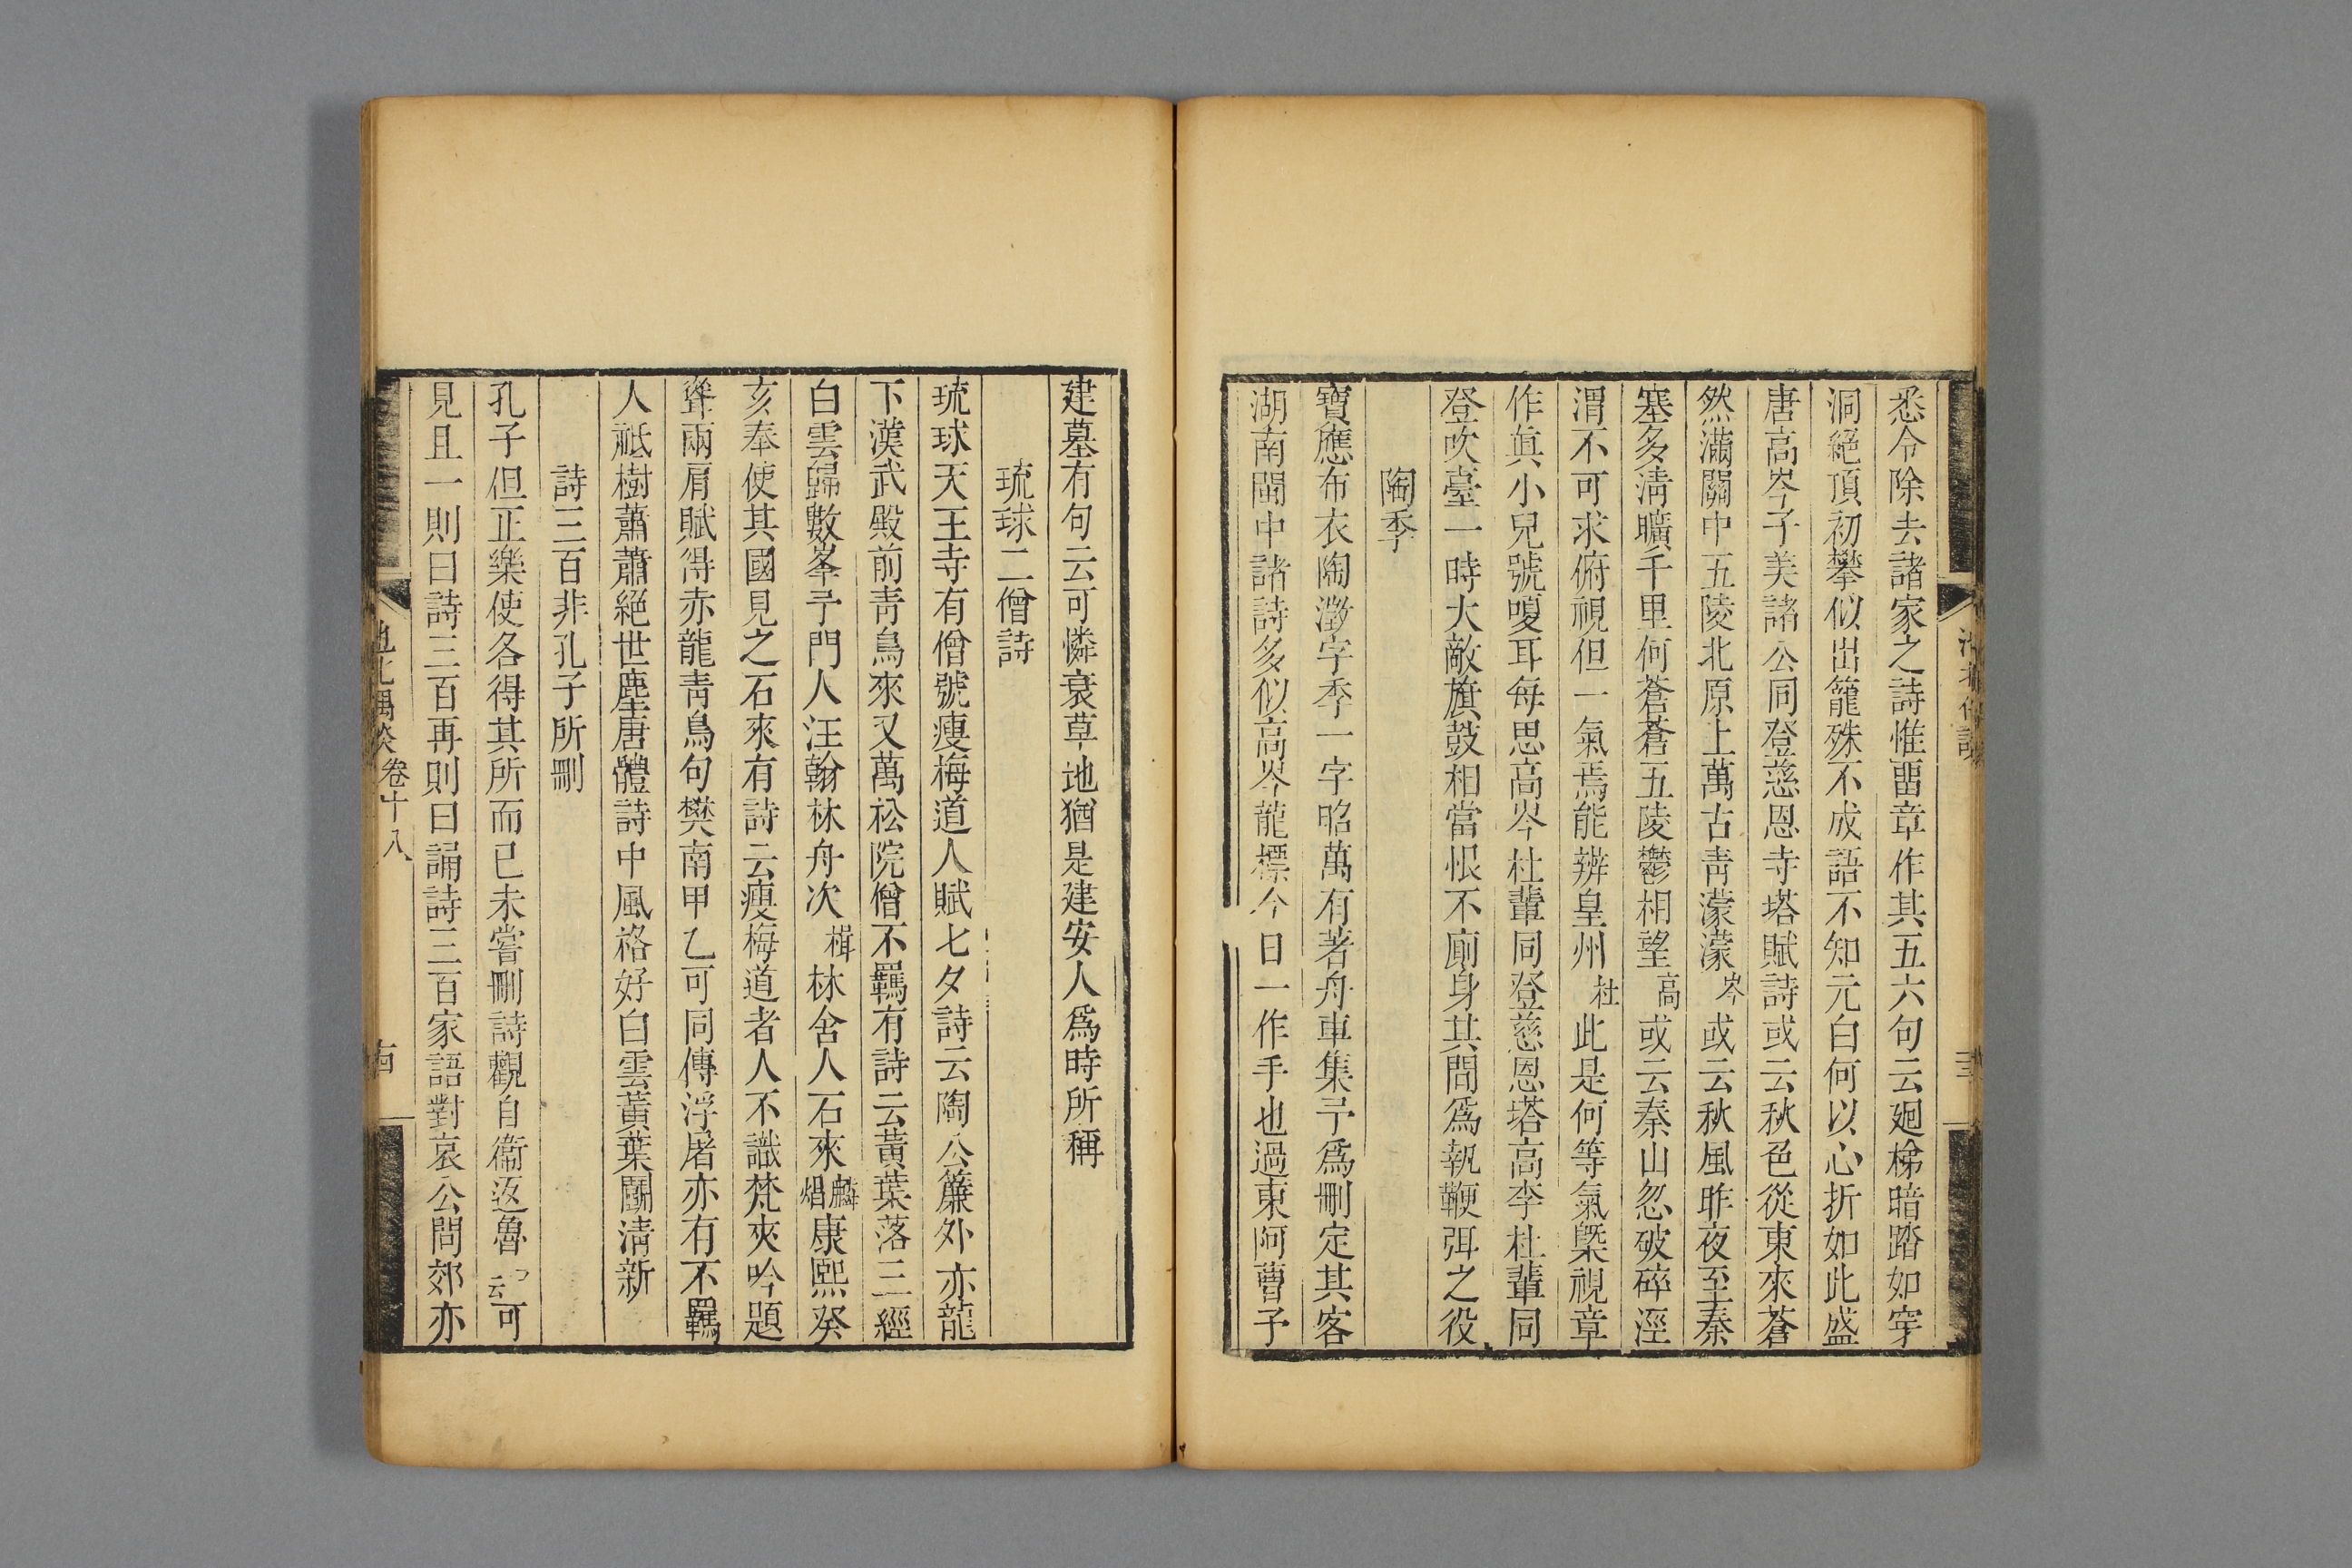 悉令除去諸家之詩惟畱章作其五六句云廻梯暗踏如穿
洞絕頂初攀似出籠殊不成語不知元白何以心折如此盛
唐高岑子美諸公同登慈恩寺塔賦詩或云秋色從東來蒼
然滿關中五陵北原上萬古青濛濛岑或云秋風昨夜至秦
塞多清曠千里何蒼蒼五陵鬱相望高或云秦山忽破碎涇
渭不可求俯視但一氣焉能辨皇州杜此是何等氣槩視章
作眞小兒號嗄耳每思高岑杜輩同登慈恩塔高李杜輩同
登吹臺一時大敵旗鼓相當恨不廁身其間爲執鞭弭之役
陶季
寶應布衣陶澂字季一字昭萬有著舟車集予爲刪定其客
湖南閩中諸詩多似高岑龍標今日一作手也過東阿曹子
建墓有句云可憐衰草地猶是建安人爲時所稱
琉球二僧詩
琉球天王寺有僧號瘦梅道人賦七夕詩云陶公簾外亦龍
下漢武殿前青鳥來又萬松院僧不羈有詩云黃葉落三經
白雲歸數峯予門人汪翰林舟次楫林舍人石來麟焻康熙癸
亥奉使其國見之石來有詩云瘦梅道者人不識梵夾吟題
聳兩肩賦得赤龍青鳥句樊南甲乙可同傳浮屠亦有不羈
人祗樹蕭蕭絕世塵唐體詩中風格好白雲黃葉鬭清新
詩三百非孔子所刪
孔子但正樂使各得其所而已未嘗刪詩觀自衞返魯云可
見且一則曰詩三百再則曰誦詩三百家語對哀公問郊亦
池北偶談卷十八